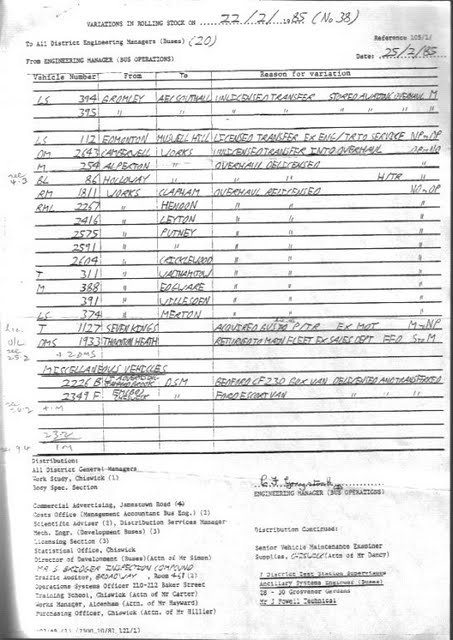 VARIATIONS IN ROLLING STOCK ON 22/2/1985 (No 38)
To All District Engineering Managers (Buses) (20)
Reference 105/1/
From ENGINEERING MANAGER (BUS OPERATIONS)
Date: 25/2/85
Vehicle Number From To Reason for variation
LS 394 BROMLEY AEC SOUTHALL UNLICENSED TRANSFER STORED AWAITING OVERHAUL M
395 " " " " "
LS 112 EDMONTON MUSWELL HILL LICENSED TRANSFER EX ENG/TR TO SERVICE NP to NP
DM 2643 CAMBERWELL WORKS UNLICENSED TRANSFER INTO OVERHAUL
M 254 ALPERTON " OVERHAUL DELICENSED "
BL 86 HOLLOWAY " " " H/TR "
RM 1811 WORKS CLAPHAM OVERHAUL RELICENSED NO to OP
RML 2267 " HENDON " " "
2416 " LEYTON " " "
2575 " PUTNEY " " "
2591 " " " " "
2604 " CRICKLEWOOD " " "
T 311 " WALTHAMSTOW " " "
M 388 " EDGWARE " " "
391 " WILLESDEN " " "
LS 374 " MERTON " " "
T 1127 SEVEN KINGS ACQUIRED BUS TO P/TR EX MOT M to NP
DMS 1933 THORNTON HEATH RETURNED TO MAIN FLEET EX SALES DEPT FFD S to M
+ 2 DMS
MISCELLANEOUS VEHICLES
2226 B DSM BEDFORD CF 230 BOX VAN DELICENSED AND TRANSFERRED
2349 F " FORD ESCORT VAN " " "
+ 1 M
232
1 M
Distribution:
All District General Managers
Work Study, Chiswick (1)
Body Spec. Section
ENGINEERING MANAGER (BUS OPERATIONS)
Commercial Advertising, Jamestown Road (4)
Costs Office (Management Accountant Bus Eng.) (2)
Scientific Adviser (2), Distribution Services Manager
Meth. Engr. (Development Buses) (2)
Licensing Section (2)
Statistical Office, Chiswick
Director of Development (Buses)(Attn of Mr Simon)
MR S BRIDGER INSPECTION COMPOUND
Traffic Auditor, BROADWAY, Room 451 (2)
Operations Systems Officer 210-212 Baker Street
Training School, Chiswick (Attn of Mr Carter)
Works Manager, Aldenham (Attn. of Mr Hayward)
Purchasing Officer, Chiswick (Attn of Mr Hillier)
Distribution Continues:
Senior Vehicle Maintenance Examiner
Supplies, CHISWICK (Attn of Mr Dancy)
7 District Test Station Supervisors
Ancillary Systems Engineer (Buses)
28 - 30 Grosvenor Gardens
Mr J Powell Technical